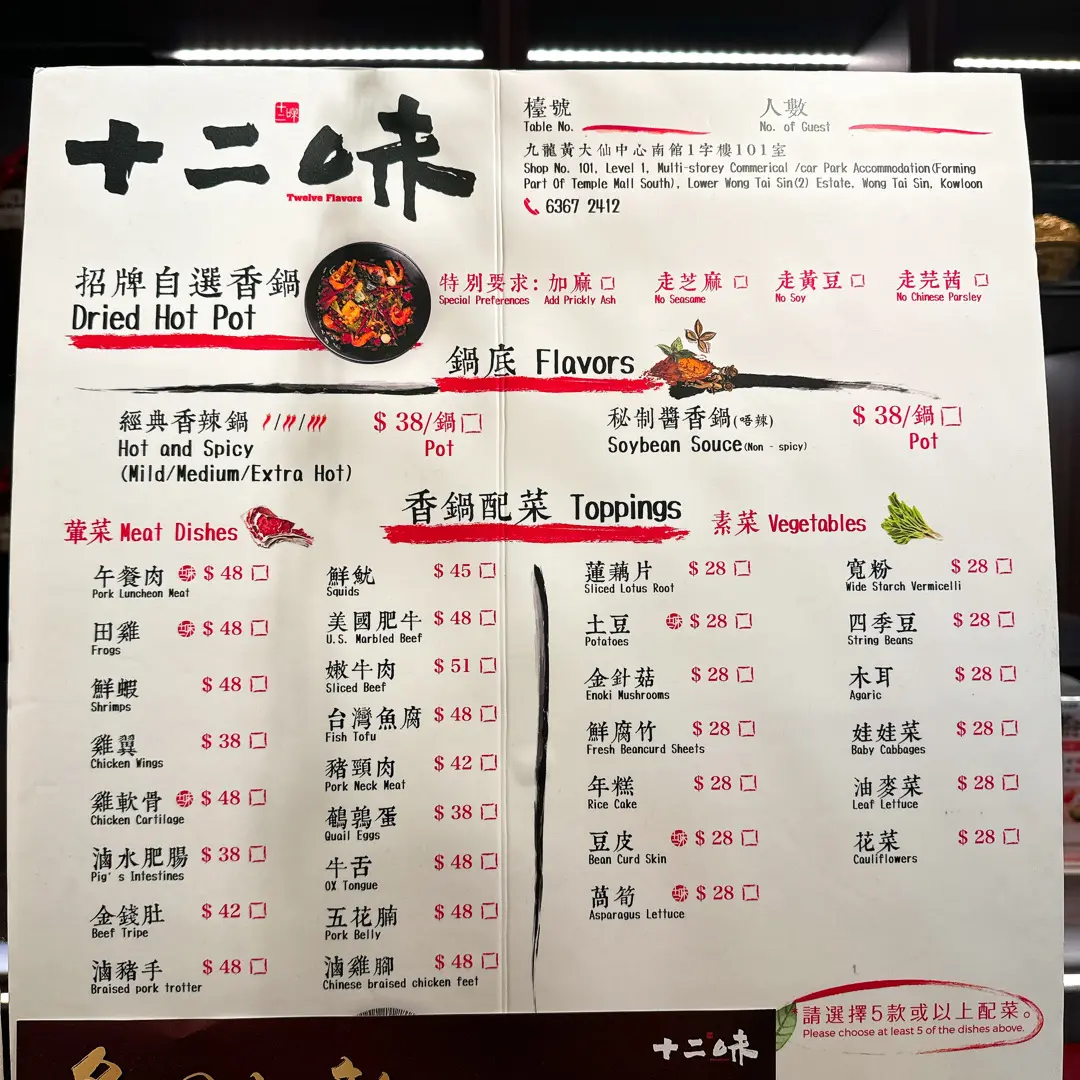 十二味
十二味
Twelve Flavors
檯號
Table No.
人數
No. of Guest
九龍黃大仙中心南館1字樓101室
Shop No. 101, Level 1, Multi-storey Commerical /car Park Accommodation(Forming
Part Of Temple Mall South), Lower Wong Tai Sin(2) Estate. Wong Tai Sin, Kowloon
6367 2412
招牌自選香鍋
Dried Hot Pot
特別要求: 加麻 走芝麻 走黃豆 走芫茜
Special Preferences Add Prickly Ash No Seasame No Soy No Chinese Parsley
鍋底 Flavors
經典香辣鍋 / / $ 38/鍋
Hot and Spicy Pot
(Mild/Medium/Extra Hot)
秘制醬香鍋(唔辣) $ 38/鍋
Soybean Souce(Non - spicy) Pot
香鍋配菜 Toppings
葷菜 Meat Dishes
午餐肉 $ 48
Pork Luncheon Meat
田雞 $ 48
Frogs
鮮蝦 $ 48
Shrimps
雞翼 $ 38
Chicken Wings
雞軟骨 $ 48
Chicken Cartilage
滷水肥腸 $ 38
Pig's Intestines
金錢肚 $ 42
Beef Tripe
滷豬手 $ 48
Braised pork trotter
鮮魷 $ 45
Squids
美國肥牛 $ 48
U.S. Marbled Beef
嫩牛肉 $ 51
Sliced Beef
台灣魚腐 $ 48
Fish Tofu
豬頸肉 $ 42
Pork Neck Meat
鵪鶉蛋 $ 38
Quail Eggs
牛舌 $ 48
OX Tongue
五花腩 $ 48
Pork Belly
滷雞腳 $ 48
Chinese braised chicken feet
素菜 Vegetables
蓮藕片 $ 28
Sliced Lotus Root
土豆 $ 28
Potatoes
金針菇 $ 28
Enoki Mushrooms
鮮腐竹 $ 28
Fresh Beancurd Sheets
年糕 $ 28
Rice Cake
豆皮 $ 28
Bean Curd Skin
萵筍 $ 28
Asparagus Lettuce
寬粉 $ 28
Wide Starch Vermicelli
四季豆 $ 28
String Beans
木耳 $ 28
Agaric
娃娃菜 $ 28
Baby Cabbages
油麥菜 $ 28
Leaf Lettuce
花菜 $ 28
Cauliflowers
請選擇5款或以上配菜。
Please choose at least 5 of the dishes above.
十二味